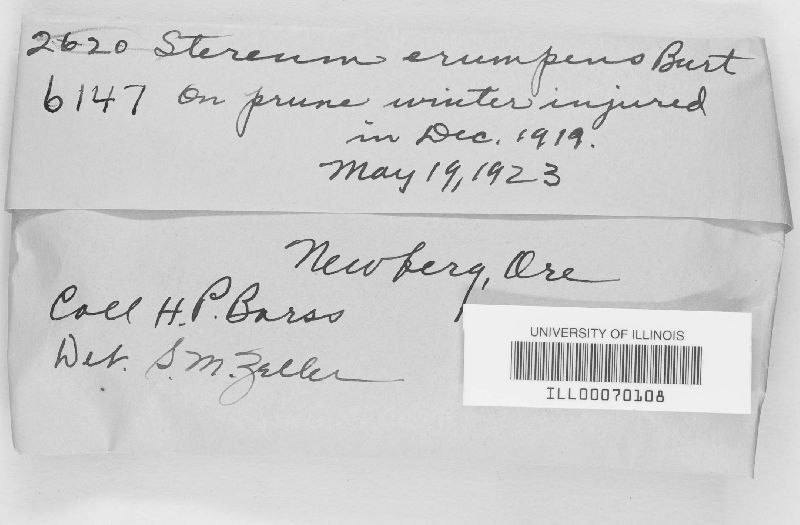 2620 Stereum erumpens Burt
6147 On prune winter injured
in Dec. 1919.
May 19, 1923
Newberg, Ore
Coll H. P. Barss
Det. S. M. Zeller
UNIVERSITY OF ILLINOIS
ILL00070108